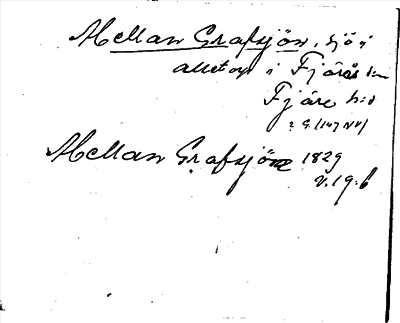 Mellan Grafsjön, sjö i
i Fjärås sn
Fjäre hd
Mellan Grafsjön 1829
V.19.6